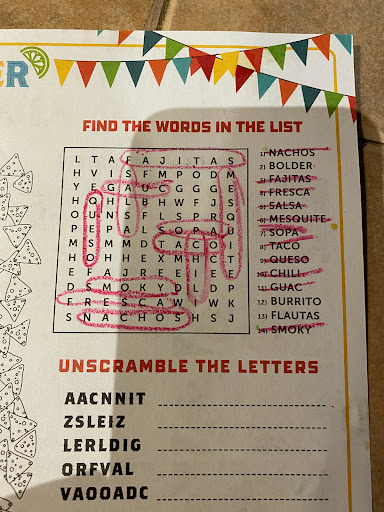 ER
FIND THE WORDS IN THE LIST
L T A F A J I T A S
H V I S F M P G D M
Y E G A U C G G G E
H Q H L B H W F J S
O U N S F L S P Q
P E P A L S O P A U
M S M M D T A C O I
H O H H E X M L T
E F A R E E E E
S M O K Y D D P
F R E S C A W W K
S N A C H O S H S J
1) NACHOS
2) BOLDER
3) FAJITAS
4) FRESCA
5) SALSA
6) MESQUITE
7) SOPA
8) TACO
9) QUESO
10) CHILI
11) GUAC
12) BURRITO
13) FLAUTAS
14) SMOKY
UNSCRAMBLE THE LETTERS
AACNNIT
ZSLEIZ
LERLDIG
ORFVAL
VAOOADC